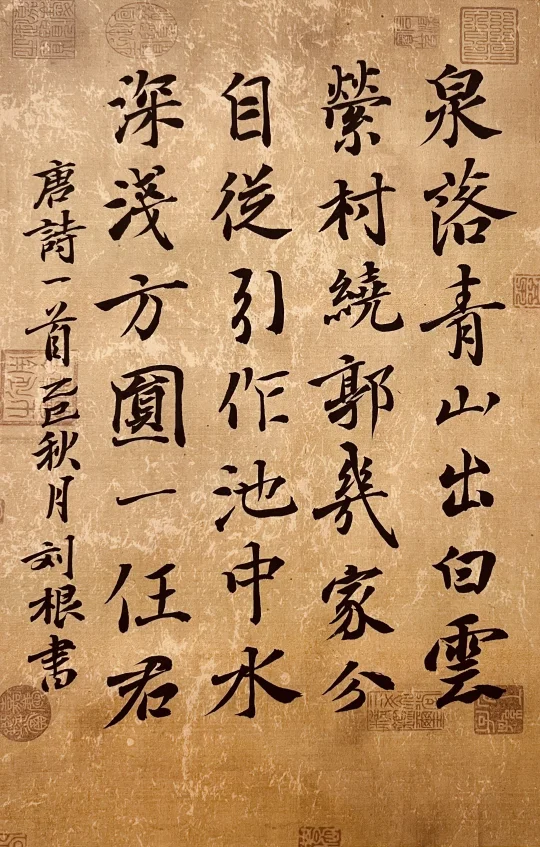 泉落青山出白雲
縈村繞郭幾家分
自從引作池中水
深淺方圓一任君
唐詩一首乙巳秋月刘根書